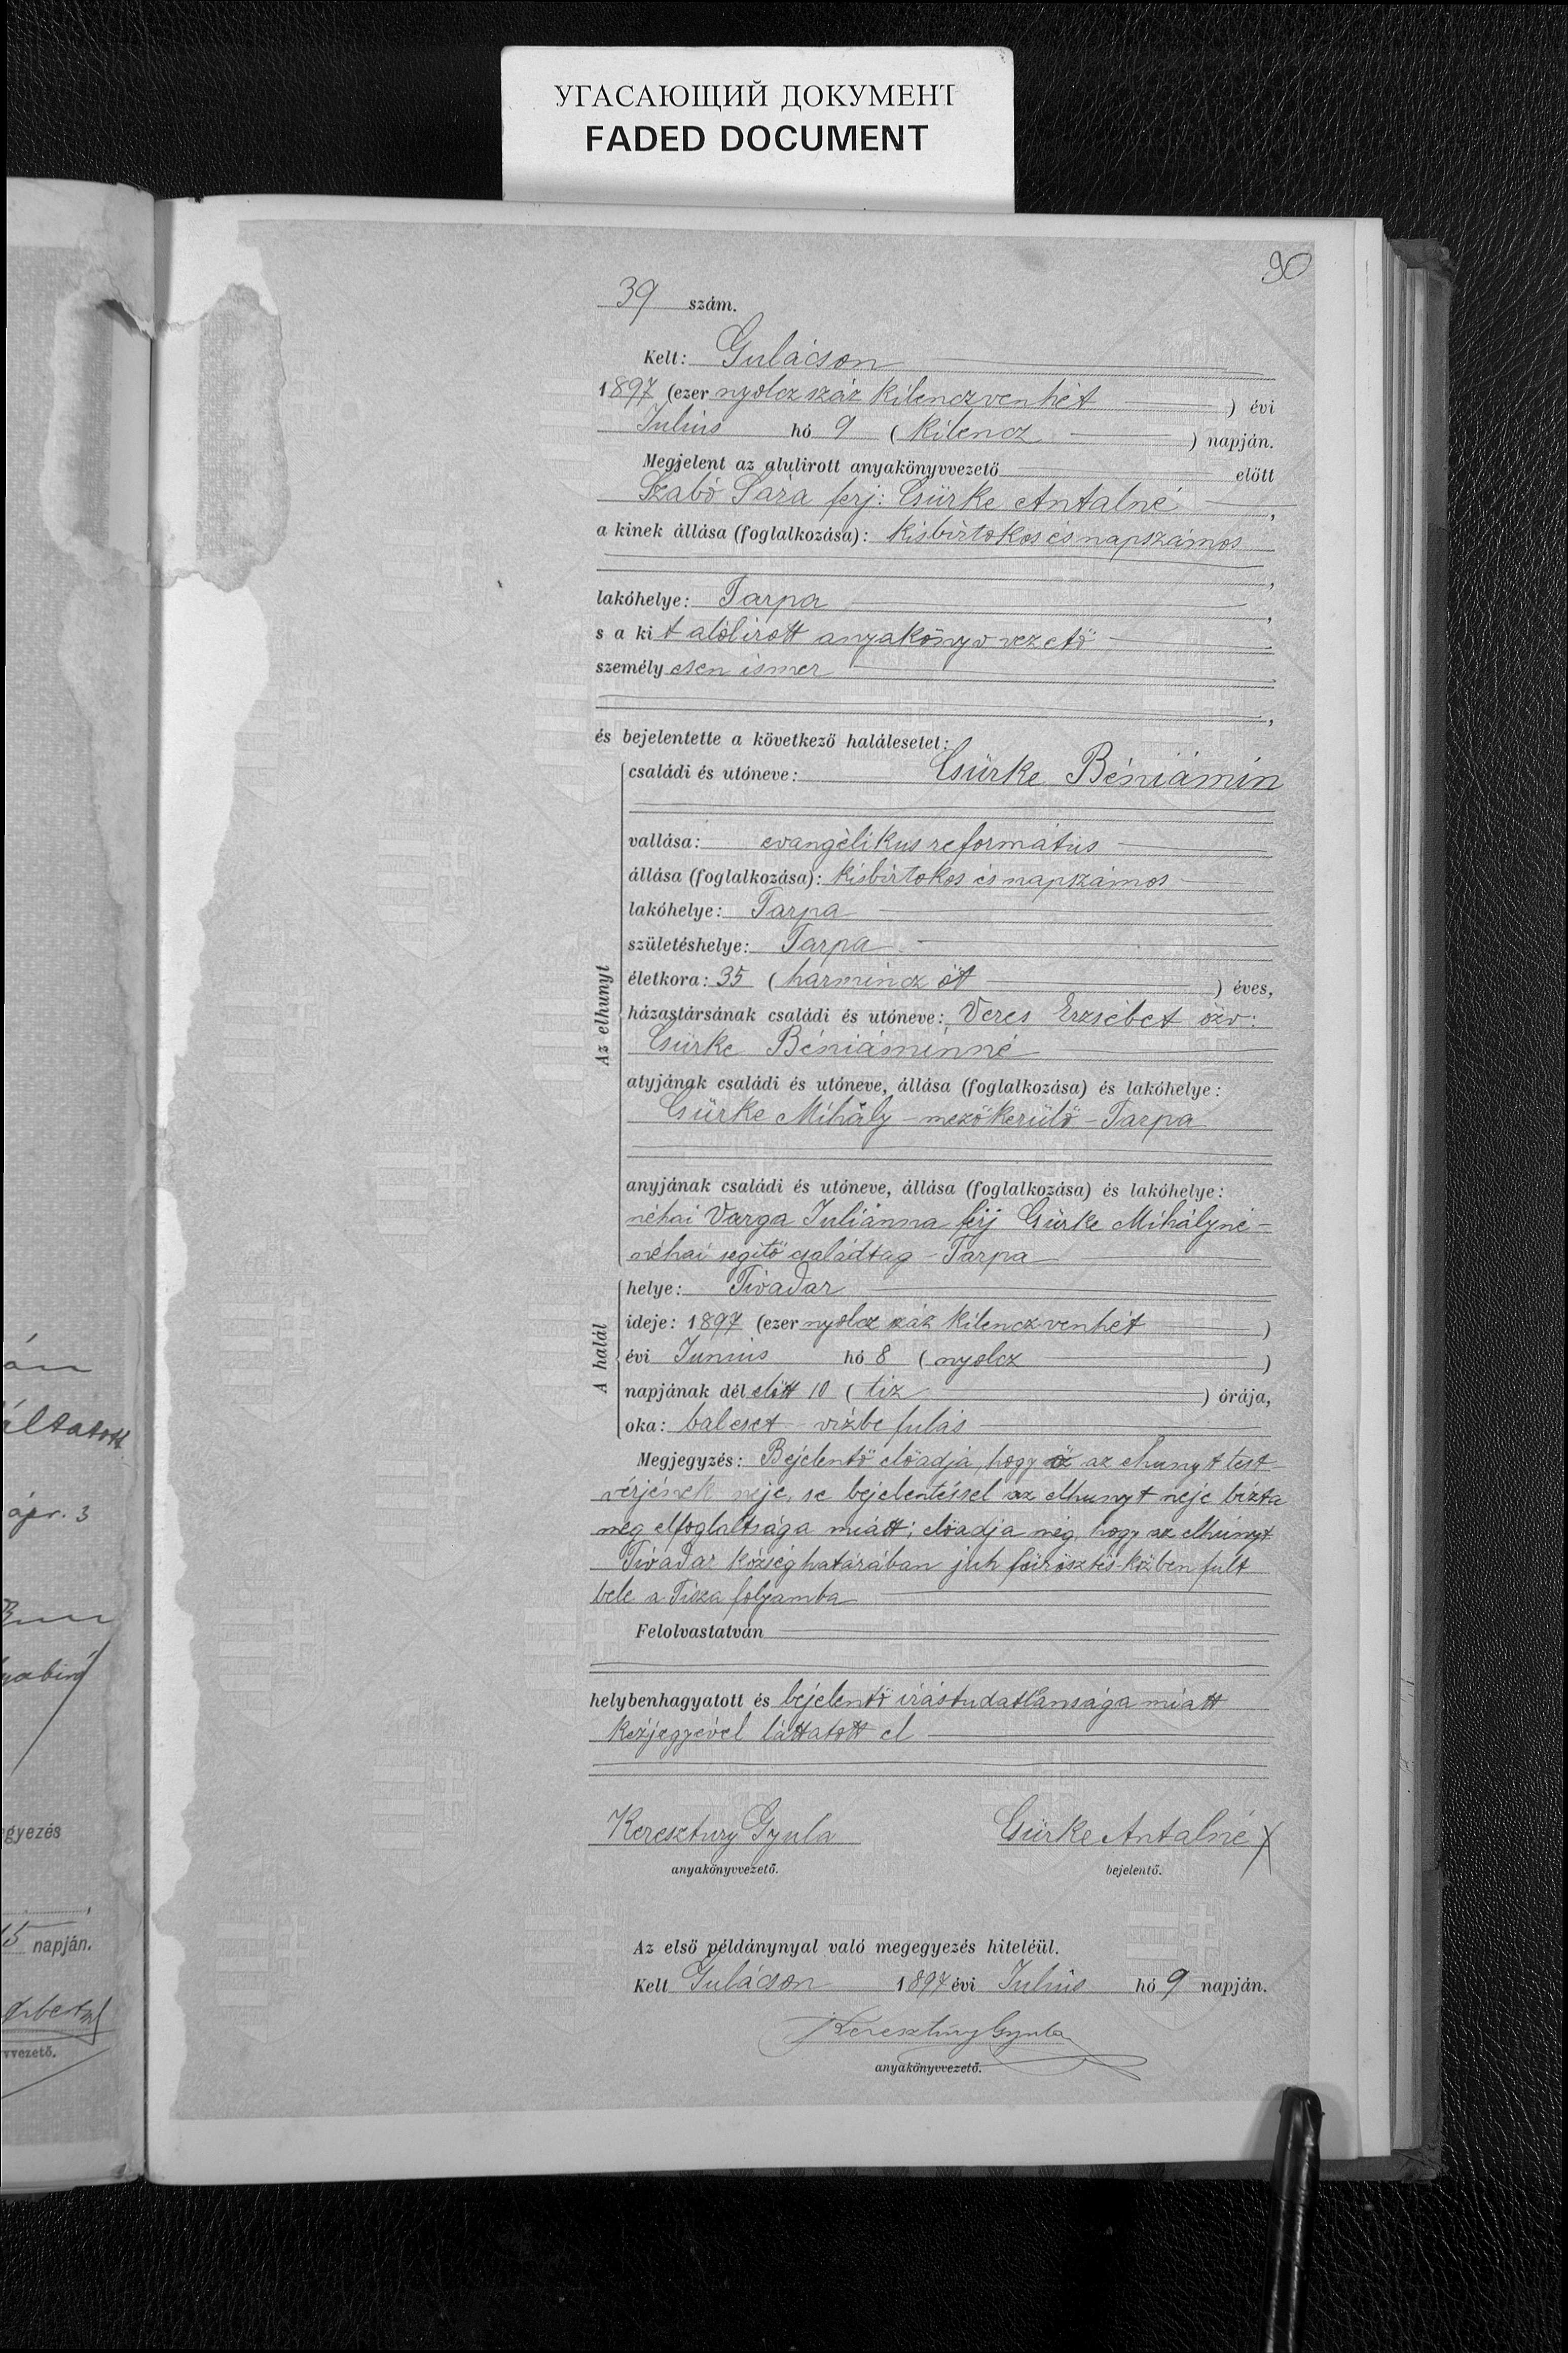 УГАСАЮЩИЙ ДОКУМЕНТ
FADED DOCUMENT
90
39 szám.
Kelt: Gulácson
1897 (ezer nyolcz száz kilenczvenhét) évi
Julius hó 9 (kilencz) napján.
Megjelent az alulirott anyakönyvvezető előtt
Szabó Sára férj: Csürke Antalné,
a kinek állása (foglalkozása): kisbirtokos és napszámos
,
lakóhelye: Tarpa,
s a kit alólirott anyakönyvvezető
személyesen ismer
,
és bejelentette a következő halálesetet:
Az elhunyt
családi és utóneve: Csürke Béniámin
vallása: evangélikus református
állása (foglalkozása): kisbirtokos és napszámos
lakóhelye: Tarpa
születéshelye: Tarpa
életkora: 35 (harmincz öt) éves,
házastársának családi és utóneve: Veres Erzsébet özv:
Csürke Béniáminné
atyjának családi és utóneve, állása (foglalkozása) és lakóhelye:
Csürke Mihály - mezőkerülő - Tarpa
anyjának családi és utóneve, állása (foglalkozása) és lakóhelye:
néhai Varga Juliánna férj Csürke Mihályné -
néhai segitő családtag - Tarpa
A halál
helye: Tivadar
ideje: 1897 (ezer nyolcz száz kilenczvenhét)
évi Junius hó 8 (nyolcz)
napjának dél előtt 10 (tiz) órája,
oka: baleset - vizbe fulás
Megjegyzés: Bejelentő előadja, hogy ő az elhunyt test-
vérjének neje, se bejelentéssel az elhunyt neje bizta
meg elfoglaltsága miatt; előadja még, hogy az elhunyt
Tivadar község határában juh fürösztés közben fult
bele a Tisza folyamba
Felolvastatván
helybenhagyatott és bejelentő irástudatlansága miatt
kézjegyével láttatott el
Keresztury Gyula Csürke Antalné X
anyakönyvvezető. bejelentő.
Az első példánynyal való megegyezés hiteléül.
Kelt Gulácson 1897 évi Julius hó 9 napján.
Keresztury Gyula
anyakönyvvezető.
áltatott
ápr. 3
egyezés
15 napján.
vvezető.